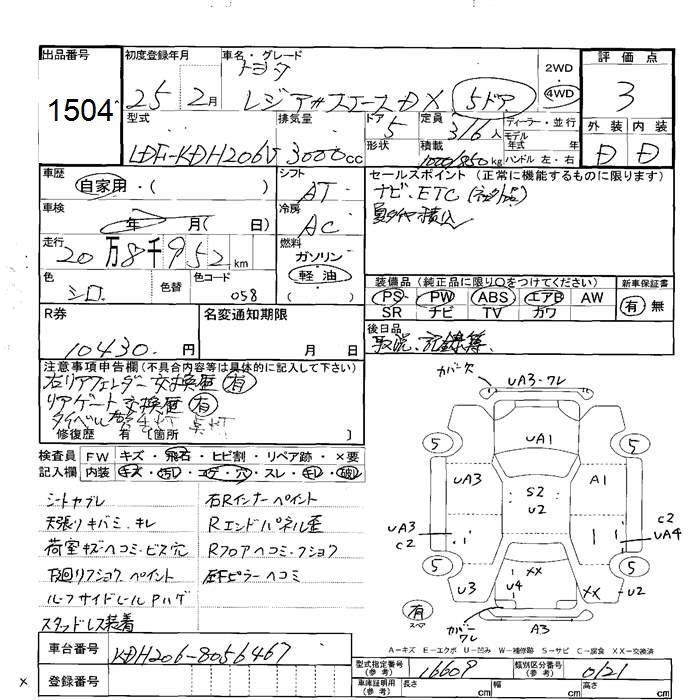 出品番号
1504
初度登録年月
25年 2月
車名・グレード
トヨタ
レジアスエースDX 5ドア
2WD
4WD
評価点
3
外装 内装
D D
型式
LDF-KDH206V
排気量
3000cc
ドア
5
形状
定員
3/6人
積載
1000/850kg
ディーラー・並行
モデル
年式 年
ハンドル 左・右
車歴
自家用・( )
シフト
AT
セールスポイント (正常に機能するものに限ります)
ナビ・ETC
夏タイヤ積込
車検
年 月( 日)
冷房
AC
走行
20万8千952km
燃料
ガソリン
軽油
( )
色
シロ
色替
色コード
058
装備品(純正品に限り○をつけてください)
PS PW ABS エアB AW
SR ナビ TV カワ
新車保証書
有 無
R券
10430円
名変通知期限
月 日
後日品
取説、記録簿
注意事項申告欄(不具合内容等は具体的に記入して下さい)
右リアフェンダー交換歴有
リアゲート交換歴有
修復歴 有 〔箇所 〕
検査員
記入欄
FW キズ・飛石・ヒビ割・リペア跡・×要
内装 キズ・汚レ・コゲ・穴・スレ・キレ・破レ
シートヤブレ
天張りキバミ・キレ
荷室キズヘコミ・ビス穴
下廻リフショク ペイント
ルーフサイドレールPハゲ
スタッドレス装着
右Rインナーペイント
Rエンドパネル歪
Rフロアヘコミ・フショク
左Fピラーヘコミ
カバー欠
UA3・ワレ
5
5
UA1
UA3
A1
S2
U2
UA3
C2
C2
UA4
5
5
XX
U4
U3
XX
U2
有
スペア
カバーワレ
A3
A−キズ E−エクボ U−凹み W−補修跡 S−サビ C−腐食 XX−交換済
車台番号
KDH206-8056467
登録番号
型式指定番号
(参考)
16609
類別区分番号
(参考)
0121
車庫証明用
(参考)
長さ cm
幅 cm
高さ cm
×